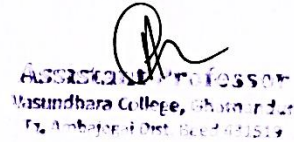 Assistant Professor
Vasundhara College, Ghatnandur
Tq. Ambajogai Dist. Beed 431519